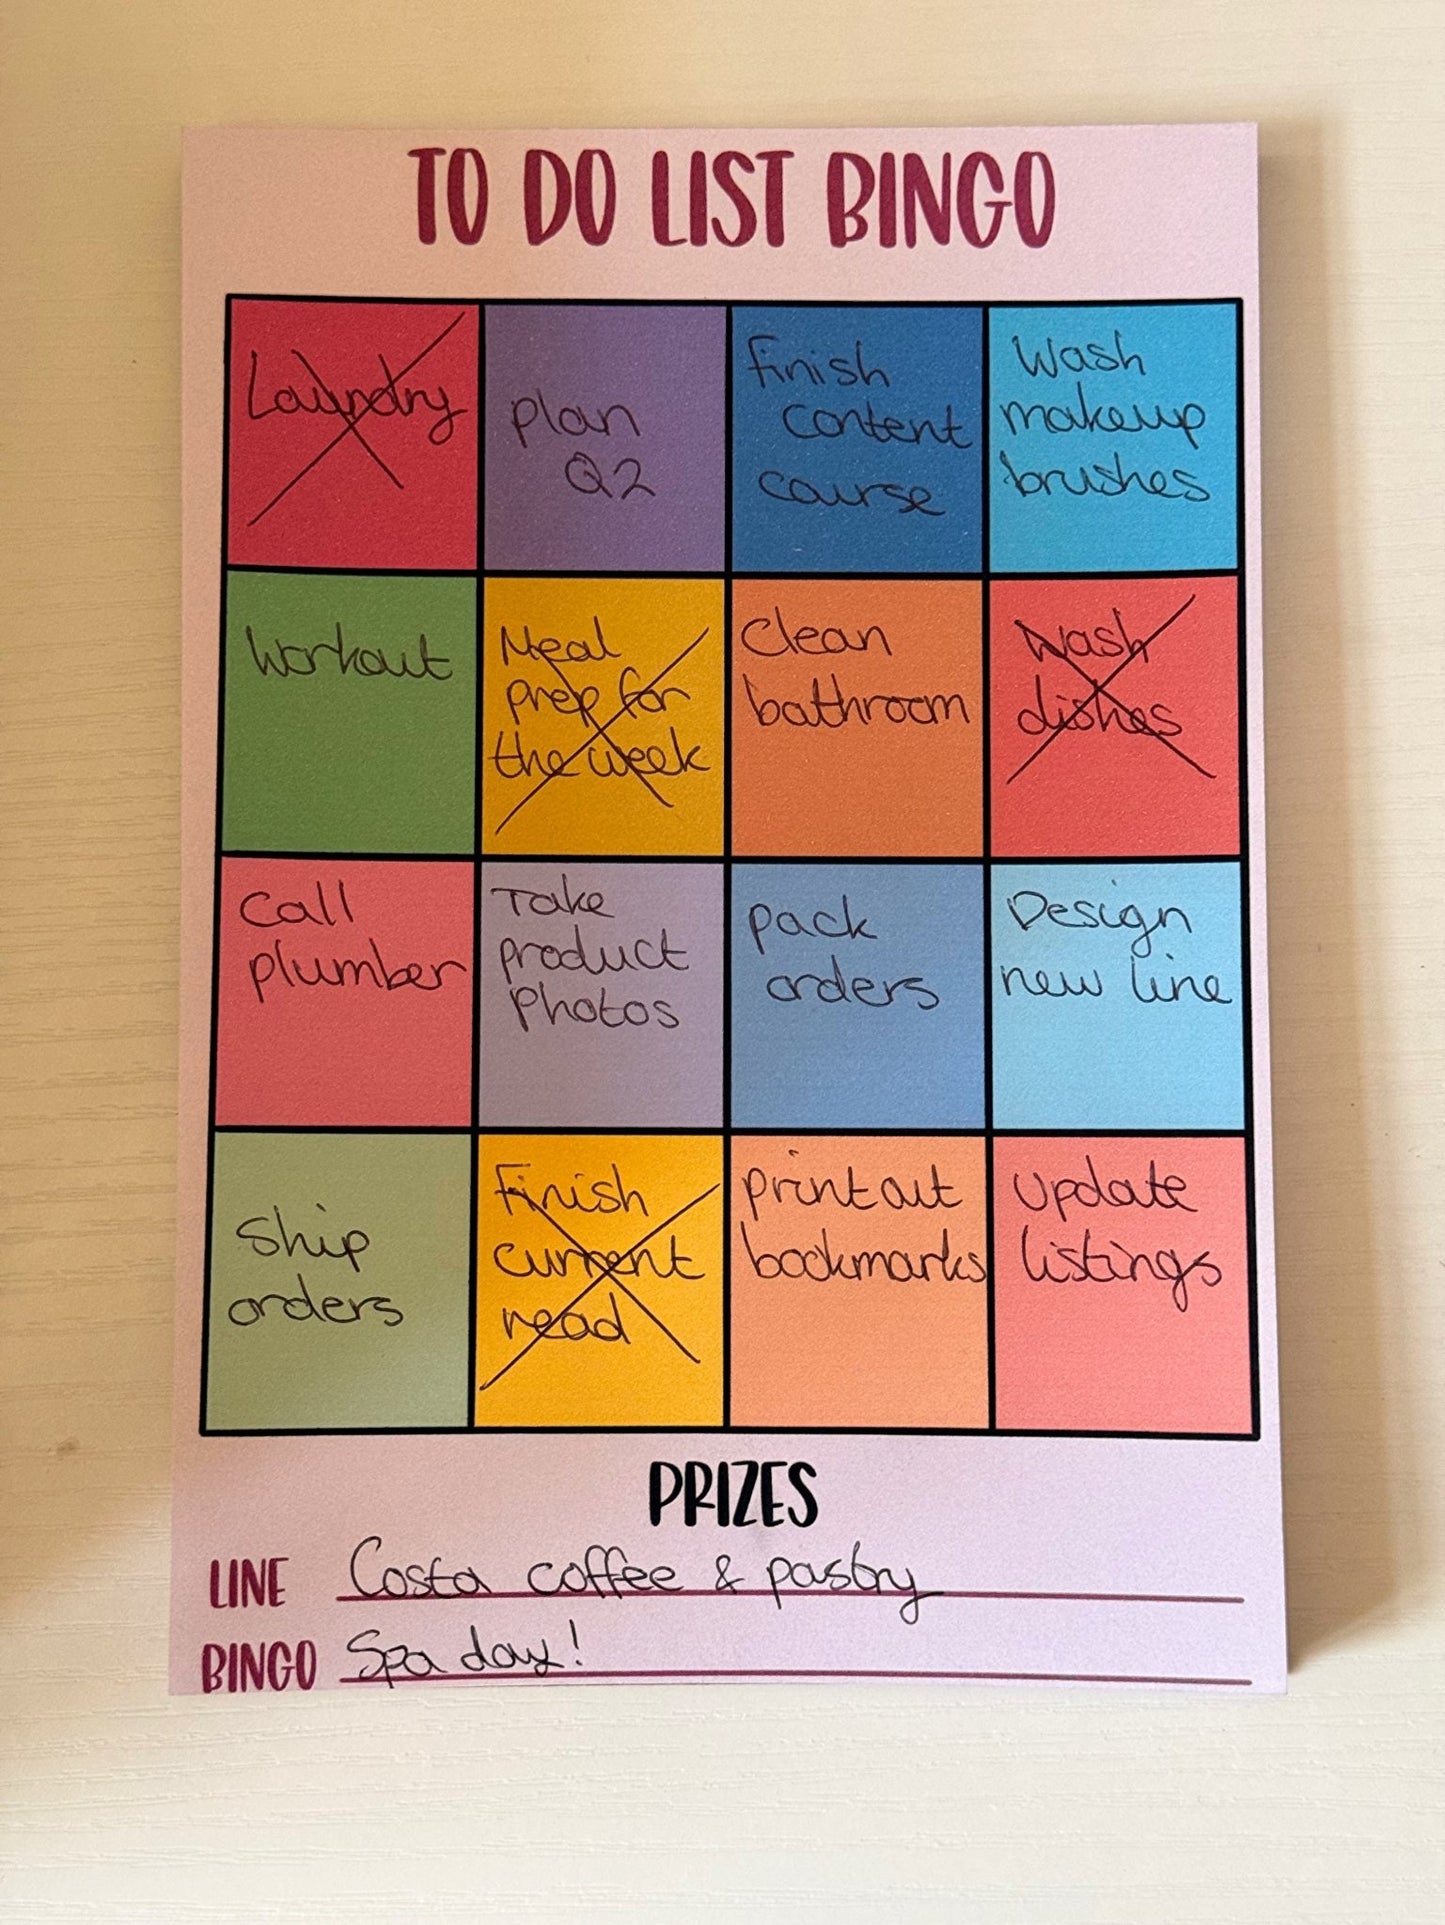 TO DO LIST BINGO
Laundry
plan
Q2
finish
content
course
Wash
makeup
brushes
Workout
Meal
prep for
the week
Clean
bathroom
Wash
dishes
Call
plumber
Take
product
photos
pack
orders
Design
new line
Ship
orders
Finish
current
read
print out
bookmarks
Update
listings
PRIZES
LINE Costa coffee & pastry
BINGO Spa day!